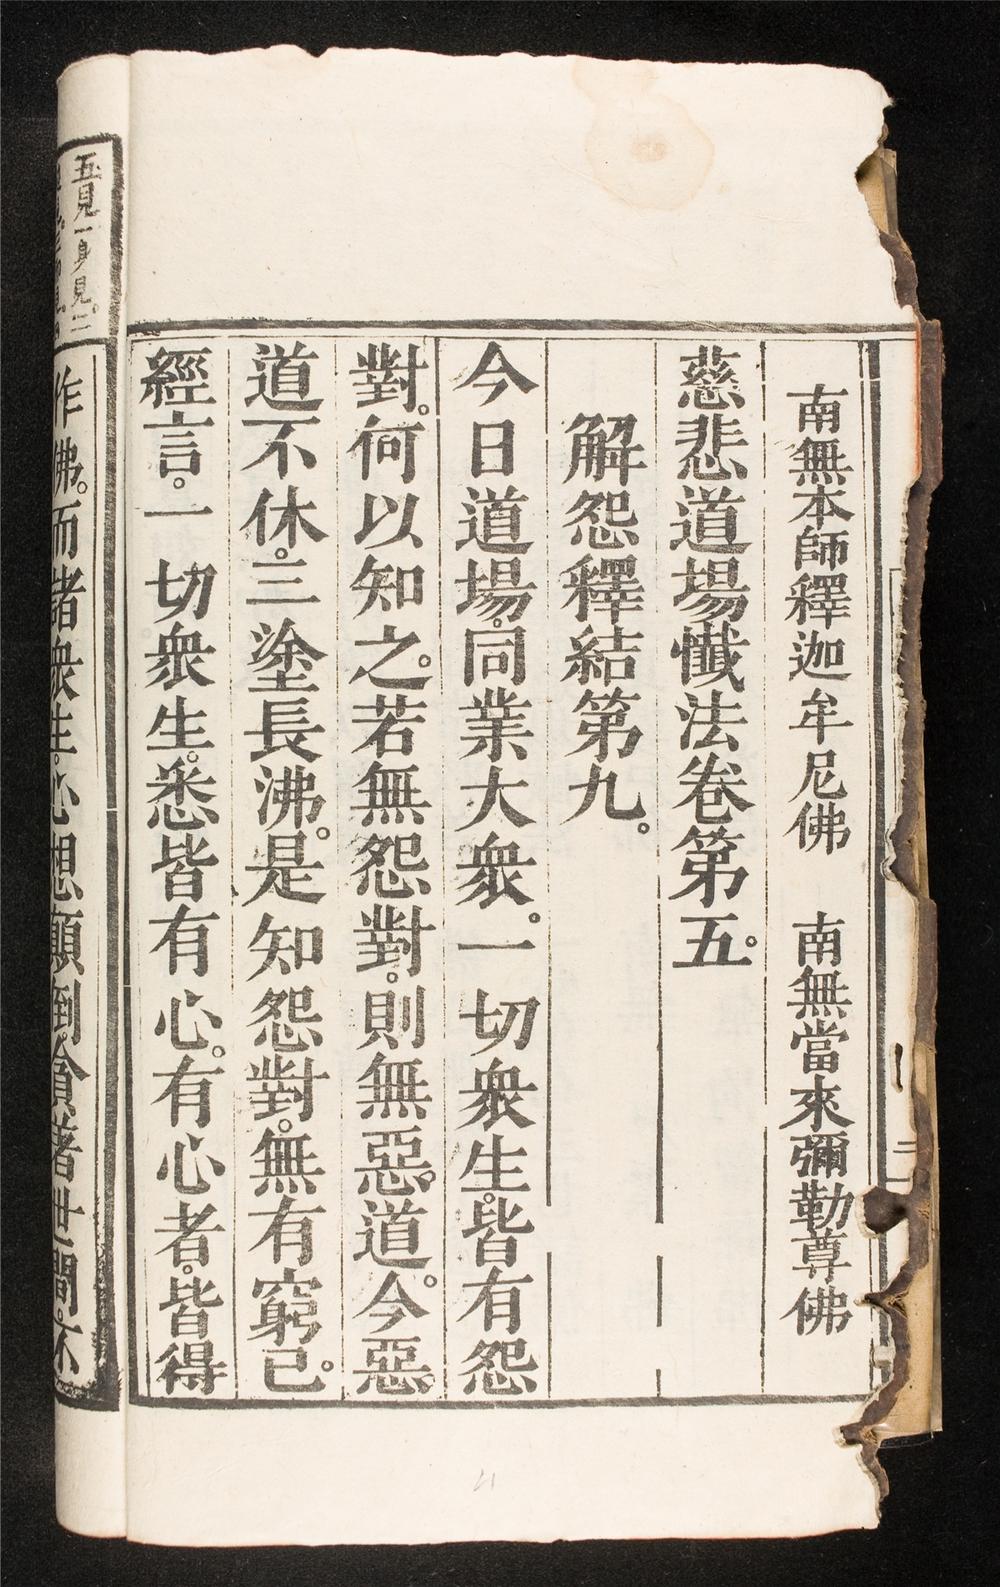 南無本師釋迦牟尼佛　南無當來彌勒尊佛
慈悲道場懺法卷第五。
解怨釋結第九。
今日道場。同業大衆。一切衆生。皆有怨
對。何以知之。若無怨對。則無惡道。今惡
道不休。三塗長沸。是知怨對。無有窮已。
經言。一切衆生。悉皆有心。有心者。皆得
作佛。而諸衆生。心想顛倒。貪著世間。不
五見一身見。二